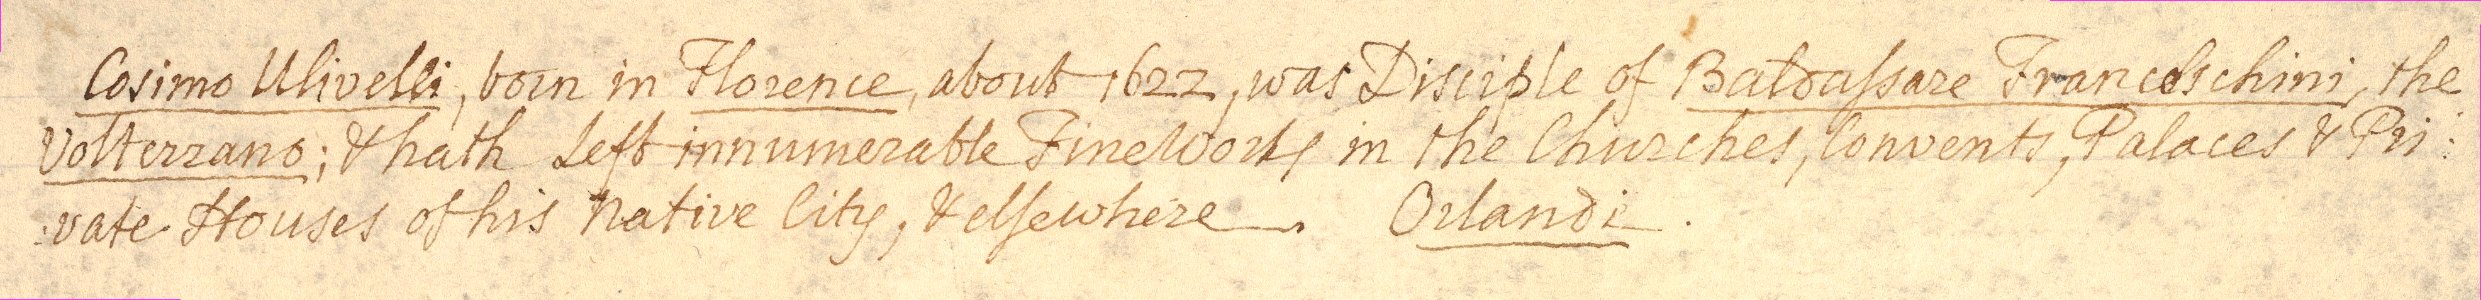 Cosimo Ulivelli, born in Florence, about 1622, was Disciple of Baldaſsare Franceschini, the
Volterrano; & hath Left innumerable Fine Works in the Churches, Convents, Palaces & Pri:
:vate Houses of his Native City, & elſewhere. Orlandi.